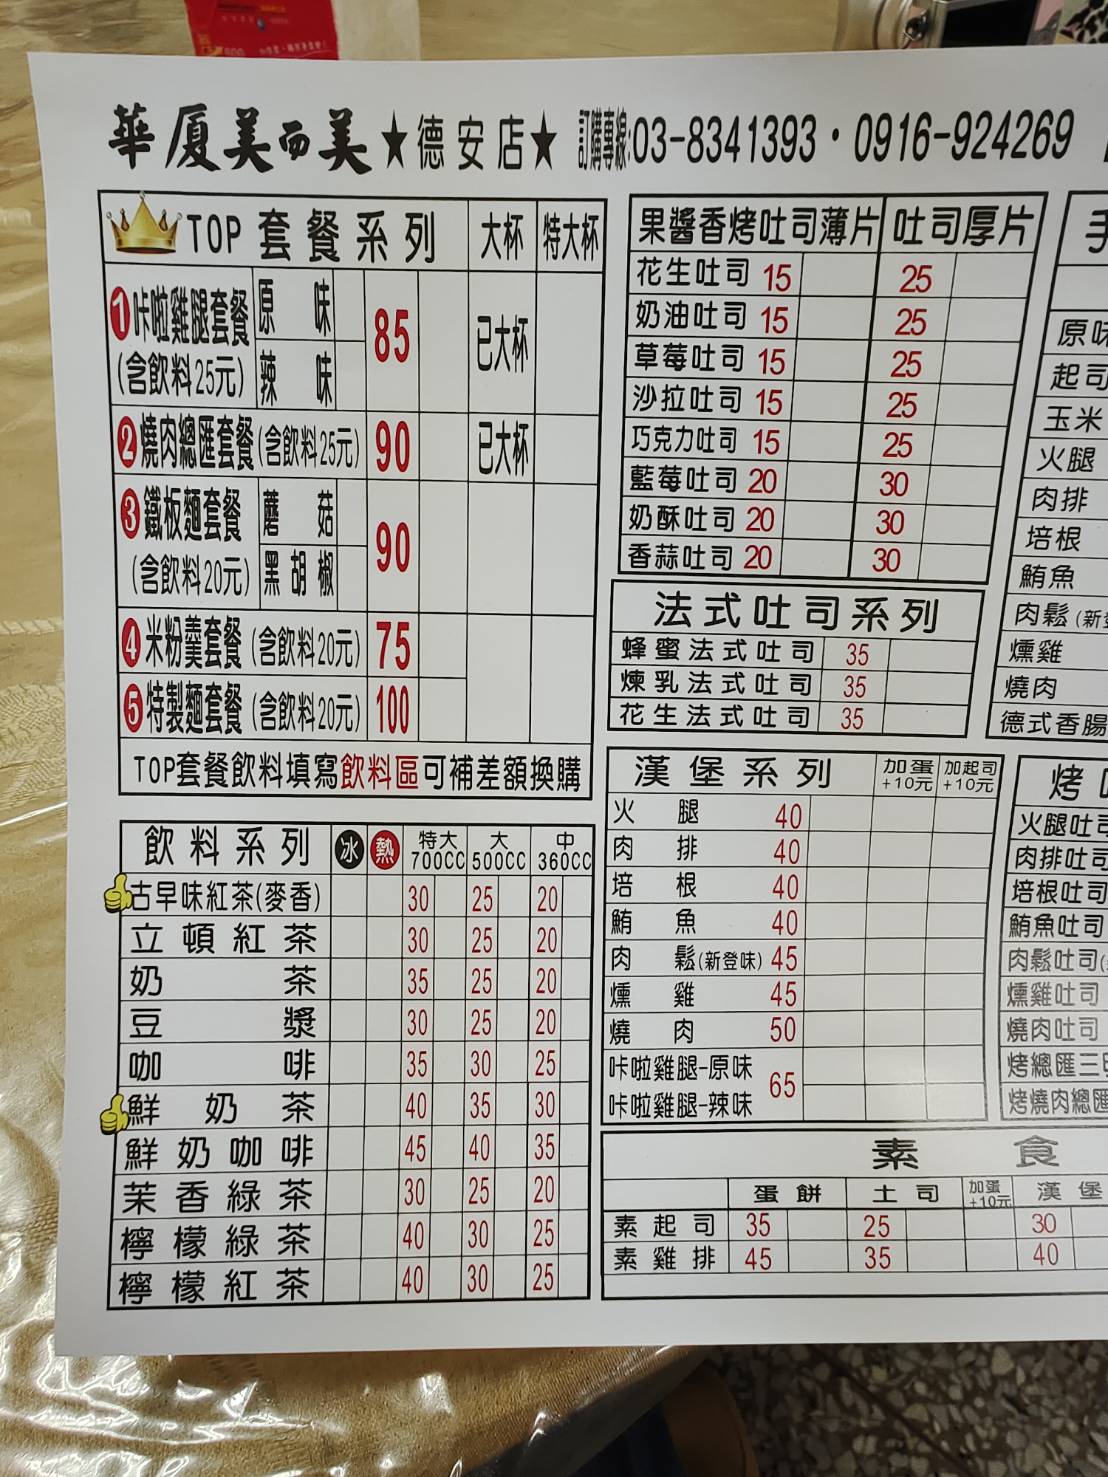 華廈美而美★德安店★ 訂購專線:03-8341393・0916-924269
TOP 套餐系列 大杯 特大杯
1 咔啦雞腿套餐 (含飲料25元) 原味 辣味 85 已大杯
2 燒肉總匯套餐 (含飲料25元) 90 已大杯
3 鐵板麵套餐 (含飲料20元) 蘑菇 黑胡椒 90
4 米粉羹套餐 (含飲料20元) 75
5 特製麵套餐 (含飲料20元) 100
TOP套餐飲料填寫飲料區可補差額換購
飲料系列 冰 熱 特大700CC 大500CC 中360CC
古早味紅茶(麥香) 30 25 20
立頓紅茶 30 25 20
奶茶 35 25 20
豆漿 30 25 20
咖啡 35 30 25
鮮奶茶 40 35 30
鮮奶咖啡 45 40 35
茉香綠茶 30 25 20
檸檬綠茶 40 30 25
檸檬紅茶 40 30 25
果醬香烤吐司薄片 吐司厚片
花生吐司 15 25
奶油吐司 15 25
草莓吐司 15 25
沙拉吐司 15 25
巧克力吐司 15 25
藍莓吐司 20 30
奶酥吐司 20 30
香蒜吐司 20 30
法式吐司系列
蜂蜜法式吐司 35
煉乳法式吐司 35
花生法式吐司 35
漢堡系列 加蛋+10元 加起司+10元
火腿 40
肉排 40
培根 40
鮪魚 40
肉鬆(新登味) 45
燻雞 45
燒肉 50
咔啦雞腿-原味
咔啦雞腿-辣味 65
素食
蛋餅 土司 加蛋+10元 漢堡
素起司 35 25 30
素雞排 45 35 40
手
原味
起司
玉米
火腿
肉排
培根
鮪魚
肉鬆(新
燻雞
燒肉
德式香腸
烤
火腿吐司
肉排吐司
培根吐司
鮪魚吐司
肉鬆吐司(
燻雞吐司
燒肉吐司
烤總匯三
烤燒肉總匯